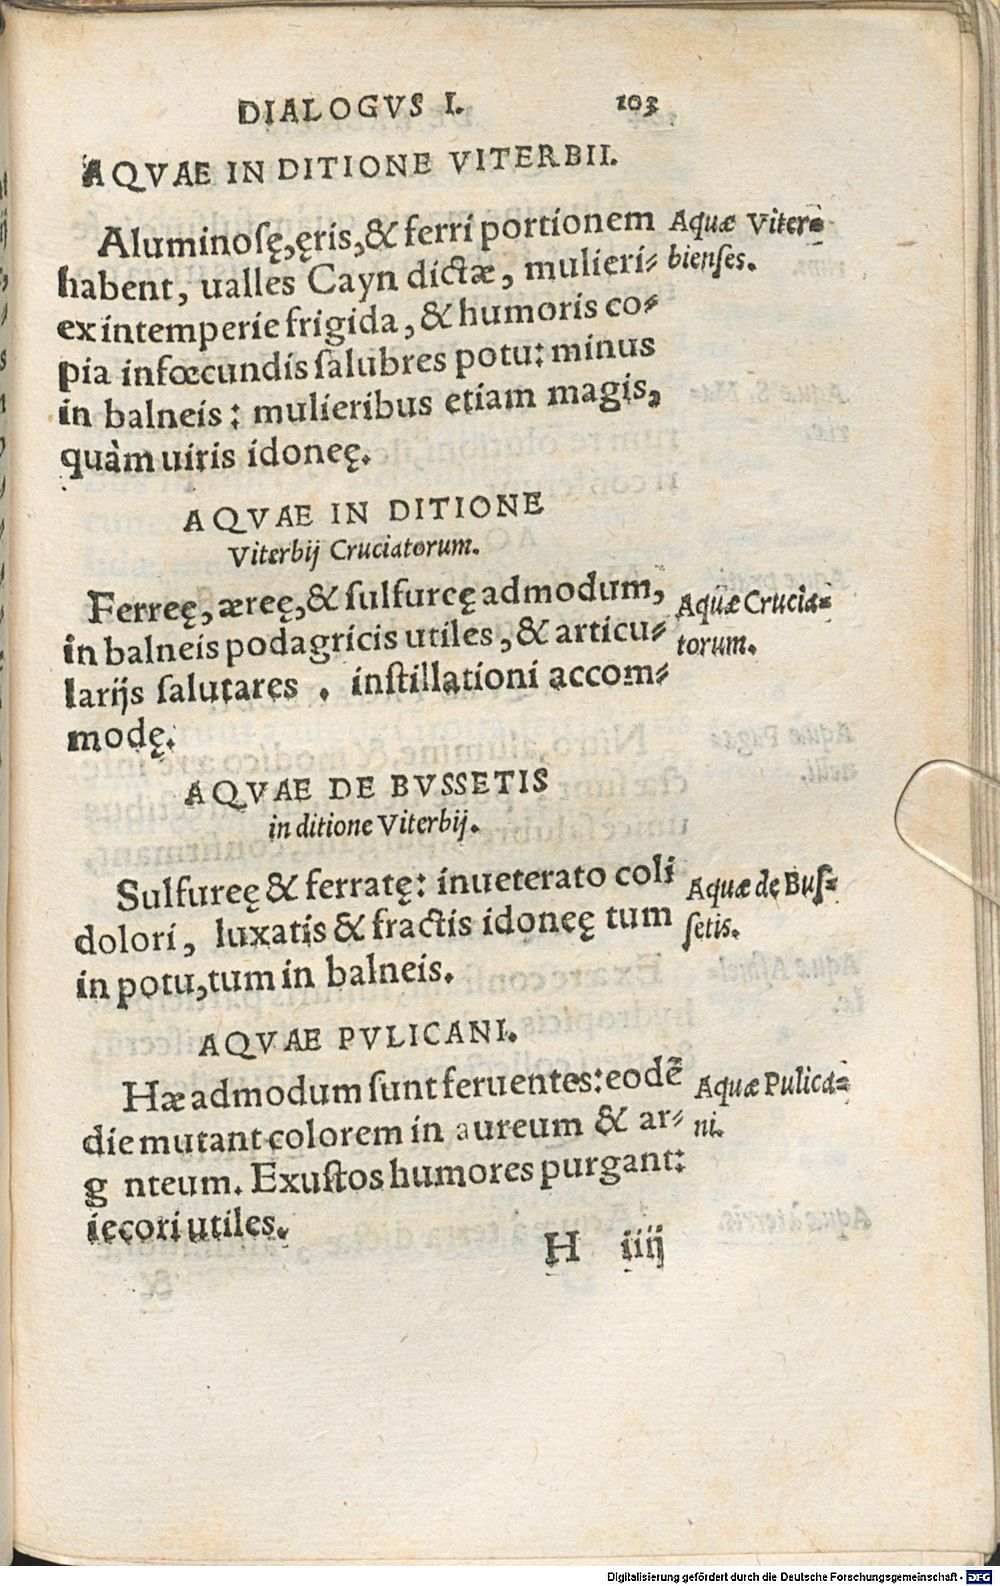 DIALOGVS I. 103
AQVAE IN DITIONE VITERBII.
Aluminosę, ęris, & ferri portionem
habent, ualles Cayn dictæ, mulieri-
ex intemperie frigida, & humoris co-
pia infœcundis salubres potu: minus
in balneis: mulieribus etiam magis,
quàm uiris idoneę.
Aquæ Viter-
bienses.
AQVAE IN DITIONE
Viterbij Cruciatorum.
Ferreę, æreę, & sulfureę admodum,
in balneis podagricis utiles, & articu-
larijs salutares . instillationi accom-
modę.
Aquæ Crucia-
torum.
AQVAE DE BVSSETIS
in ditione Viterbij.
Sulfureę & ferratę: inueterato coli
dolori, luxatis & fractis idoneę tum
in potu, tum in balneis.
Aquæ dę Bus-
setis.
AQVAE PVLICANI.
Hæ admodum sunt feruentes: eodē
die mutant colorem in aureum & ar-
g nteum. Exustos humores purgant:
iecori utiles.
Aquæ Pulica-
ni.
H iiij
Digitalisierung gefördert durch die Deutsche Forschungsgemeinschaft - DFG